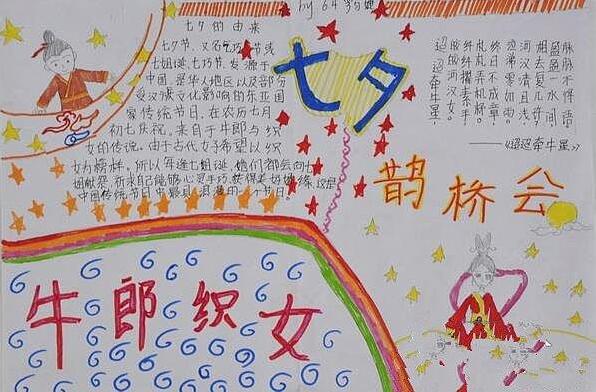 by 64
七夕的由来
七夕节，又名乞巧节或
七姐诞，七巧节，发源于
中国，是华人地区以及部份
受汉族文化影响的东亚国
家传统节日，在农历七月
初七庆祝，来自于牛郎与织
女的传说，由于古代女子希望以织
女为榜样，所以每逢七姐诞，她们都会向七
姐献祭，祈求自己能够心灵手巧，获得美好姻缘，这是
中国传统节日中最具浪漫的一个节日。
七夕
迢迢牵牛星，
皎皎河汉女。
纤纤擢素手，
札札弄机杼。
终日不成章，
泣涕零如雨。
河汉清且浅，
相去复几许，
盈盈一水间，
脉脉不得语
——《迢迢牵牛星》
鹊桥会
牛郎织女